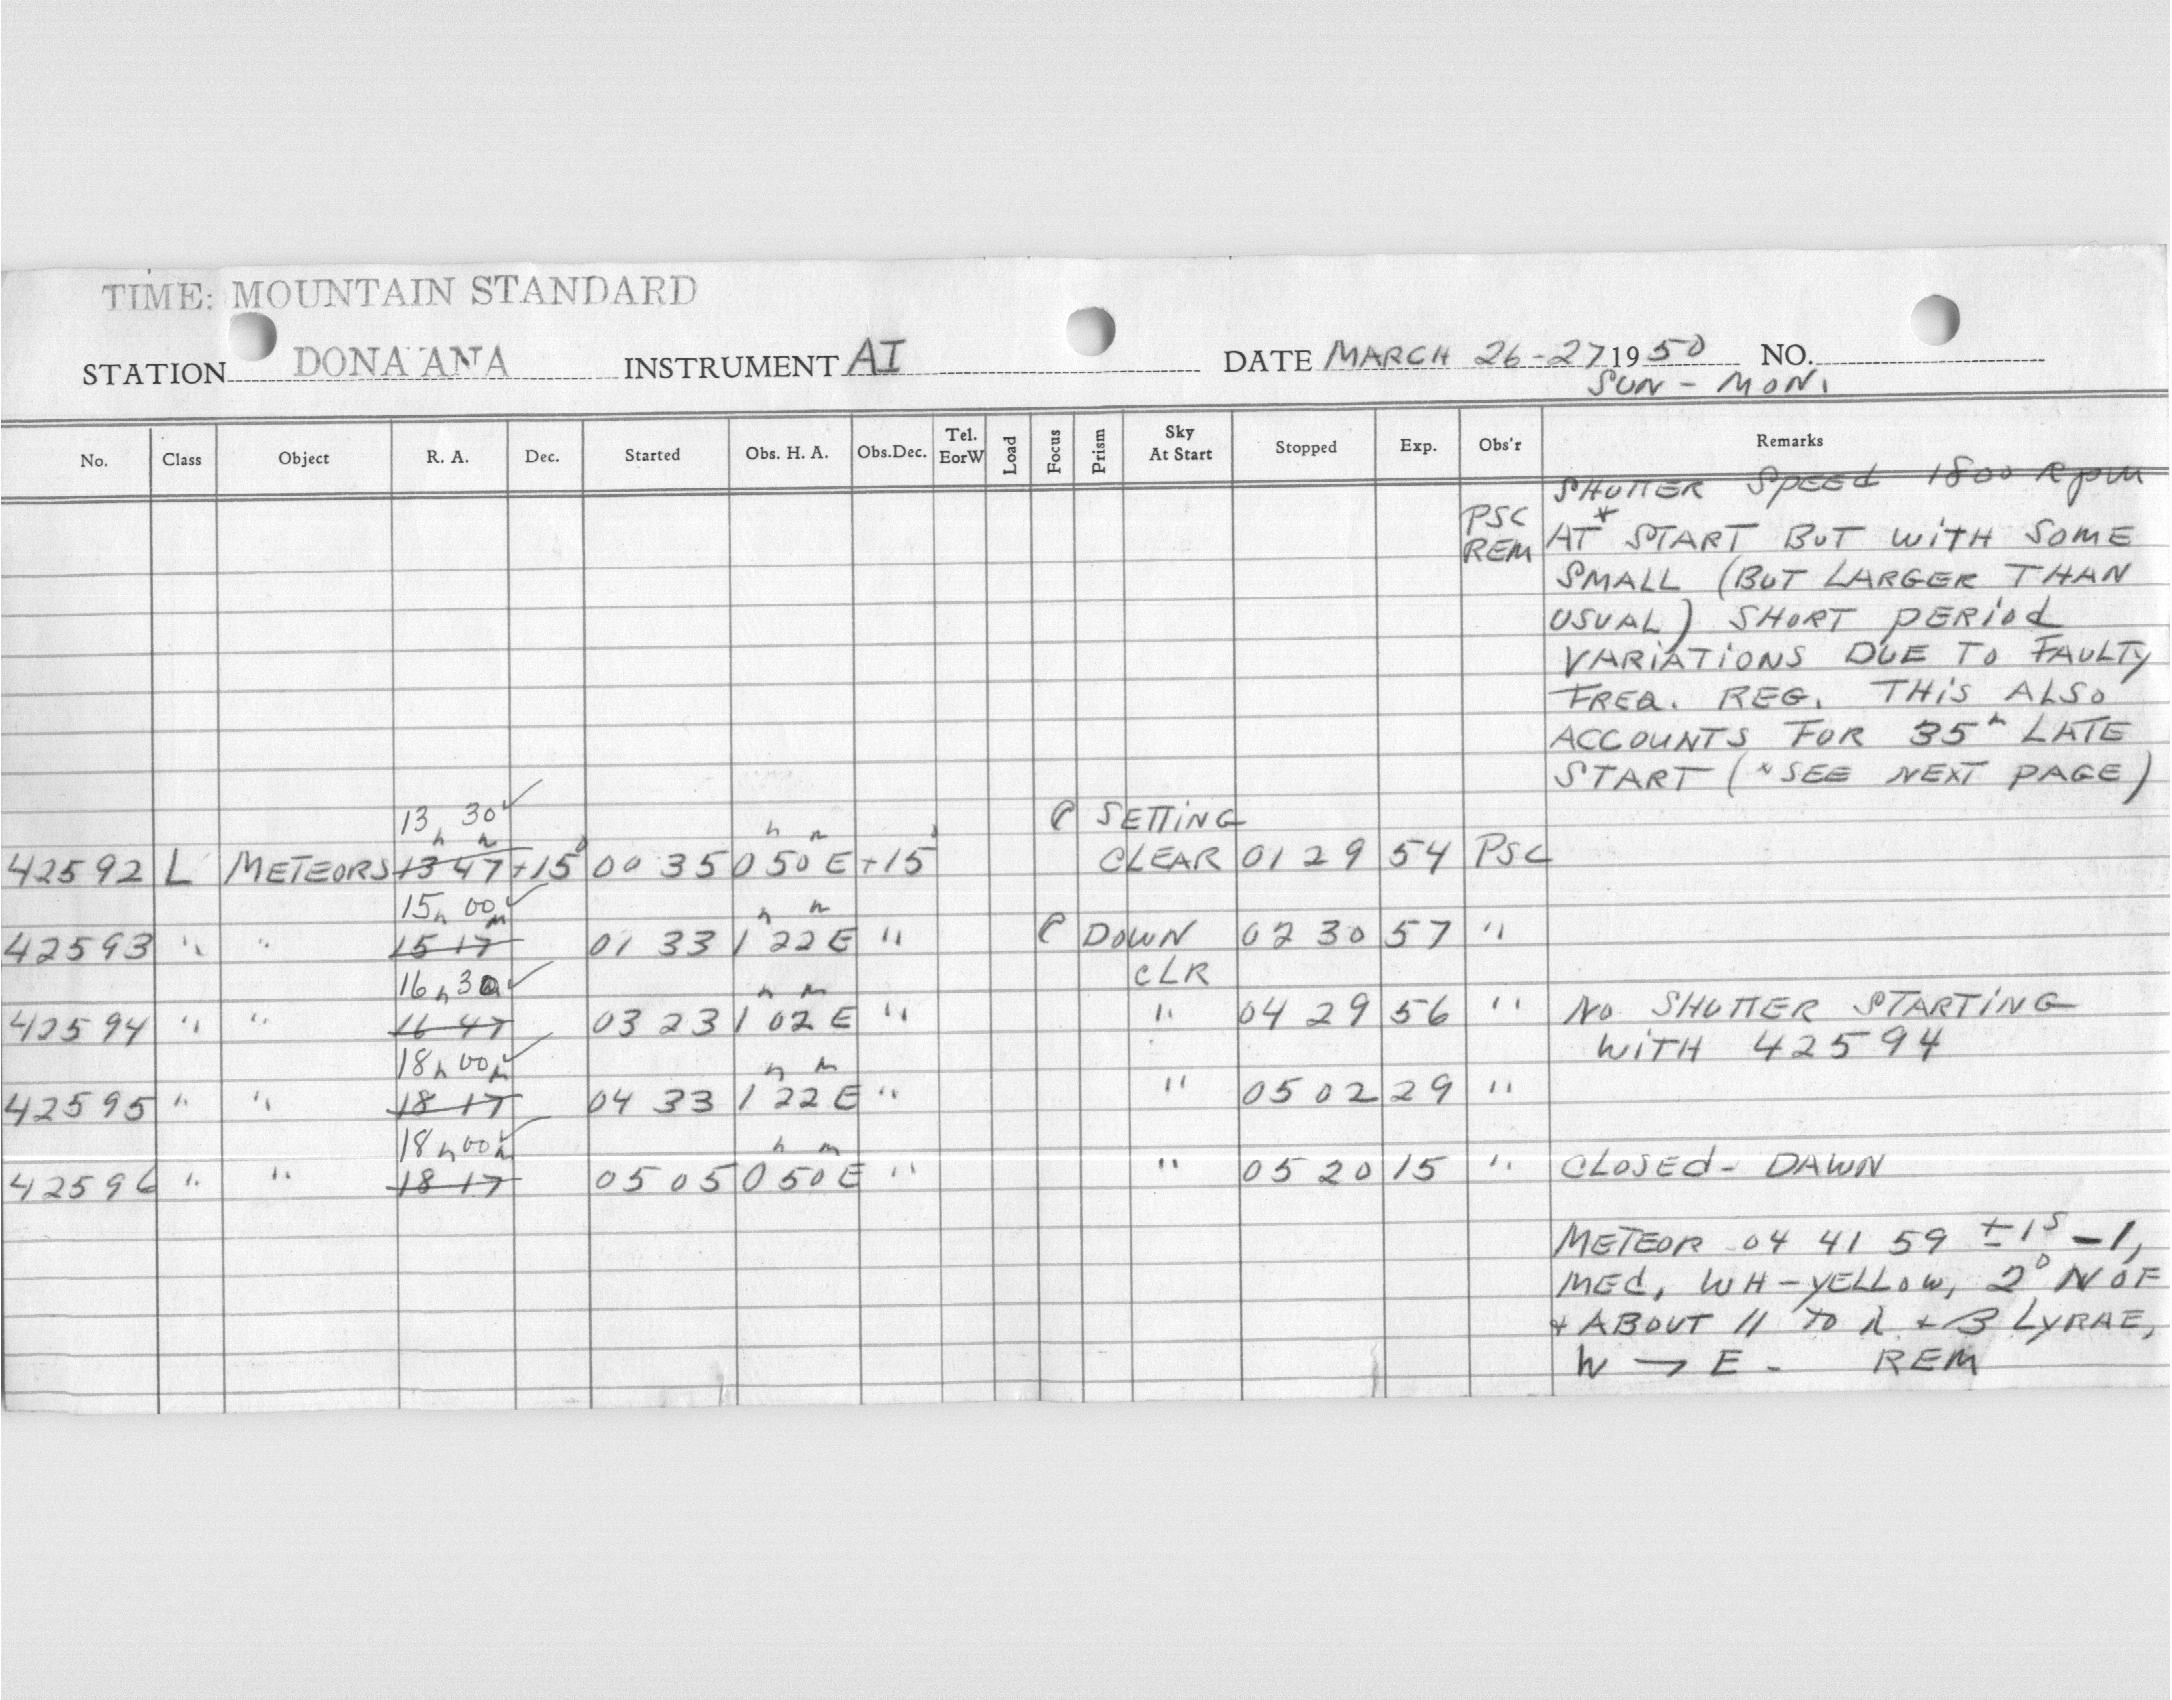 TIME: MOUNTAIN STANDARD
STATION DONA ANA INSTRUMENT AI DATE MARCH 26-27 1950 NO.
SUN - MON.
No. Class Object R. A. Dec. Started Obs. H. A. Obs.Dec. Tel. EorW Load Focus Prism Sky At Start Stopped Exp. Obs'r Remarks
SHUTTER SPEED 1800 RPM
PSC
REM AT* START BUT WITH SOME
SMALL (BUT LARGER THAN
USUAL) SHORT PERIOD
VARIATIONS DUE TO FAULTY
FREQ. REG. THIS ALSO
ACCOUNTS FOR 35m LATE
START (*SEE NEXT PAGE)
13h 30m ✓ SETTING
42592 L METEORS 13 47 +15° 00 35 0h 50m E +15° CLEAR 01 29 54 PSC
15h 00m ✓
42593 " " 15 17 01 33 1h 22m E " DOWN 02 30 57 "
16h 30m ✓ CLR
42594 " " 16 47 03 23 1h 02m E " " 04 29 56 " NO SHUTTER STARTING
18h 00m ✓ WITH 42594
42595 " " 18 17 04 33 1h 22m E " " 05 02 29 "
18h 00m ✓
42596 " " 18 17 05 05 0h 50m E " " 05 20 15 " CLOSED - DAWN
METEOR 04 41 59 ±1s -1,
MED, WH-YELLOW, 2° N OF
+ ABOUT // TO + β LYRAE,
W → E - REM